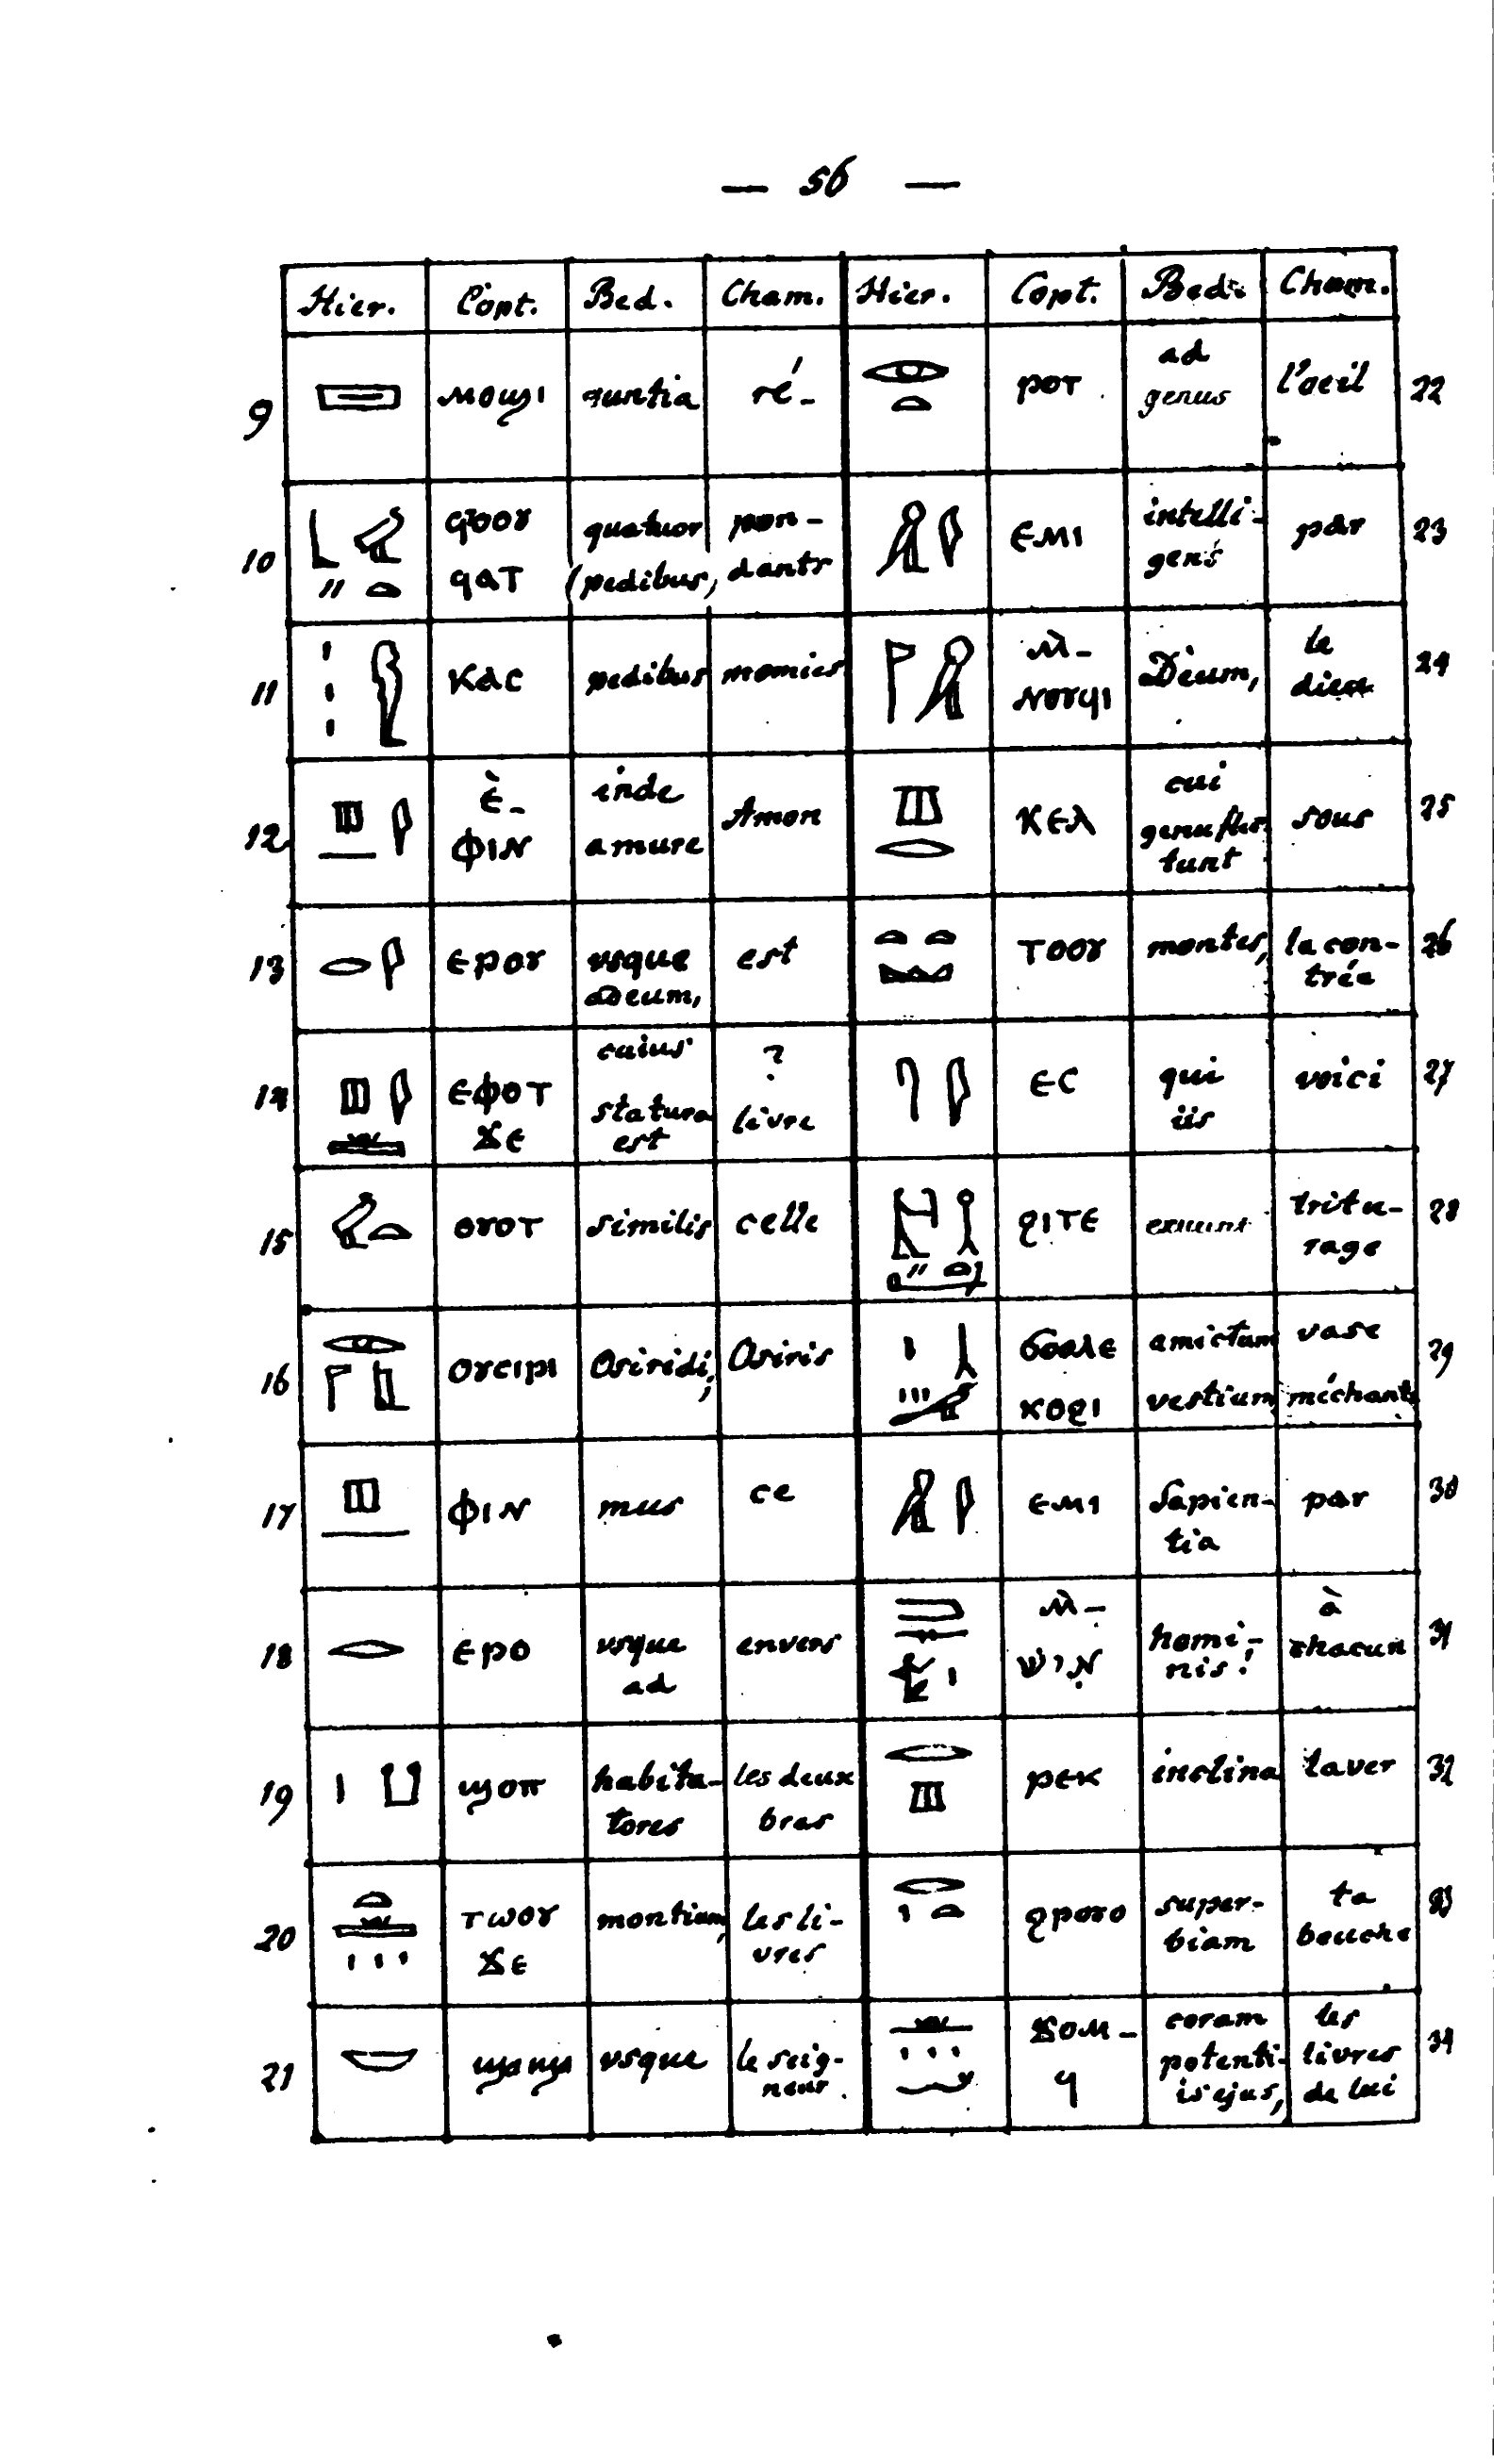 — 56 —
Hier. Copt. Bed. Cham. Hier. Copt. Bed. Cham.
9 ⲙⲟϣⲓ ré- ⲣⲟⲧ ad genus l'oeil 22
10 ϥⲧⲟⲟⲩ ϥⲁⲧ quatuor (pedibus, pon- dants ⲉⲙⲓ intelli- gens par 23
11 ⲕⲁⲥ pedibus momies ⲙ̀- ⲛⲟⲩϥⲓ Deum, le dieu 24
12 ⲉ̀- ⲫⲓⲛ inde a mure Amon ⲕⲉⲗ cui genuflec- tunt sous 25
13 ⲉⲣⲟⲩ usque ad eum, est ⲧⲟⲟⲩ montes, la con- trée 26
14 ⲉⲫⲟⲧ ϫⲉ cuius statura est ? livre ⲉⲥ qui iis voici 27
15 ⲟⲩⲟⲧ similis celle ϩⲓⲧⲉ exuunt tritu- rage 28
16 ⲟⲩⲥⲓⲣⲓ Osiridi; Osiris ϭⲟⲟⲗⲉ ⲕⲟϩⲓ amictum vestium vase méchants 29
17 ⲫⲓⲛ mus ce ⲉⲙⲓ Sapien- tia par 30
18 ⲉⲣⲟ usque ad envers ⲙ̀- homi- nis! à chacun 31
19 ϣⲟⲡ habita- tores les deux bras ⲣⲉⲕ inclina laver 32
20 ⲧⲱⲟⲩ ϫⲉ montium, les li- vres ϩⲣⲟⲩⲟ super- biam ta bouche 33
21 usque le seig- neur. ϫⲟⲙ- ϥ coram potenti- is ejus, les livres de lui 34